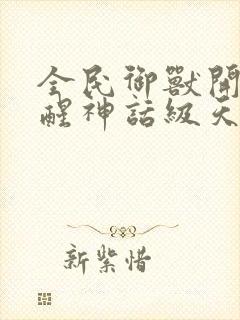 全民御獸開
醒神話級天
新紫惜